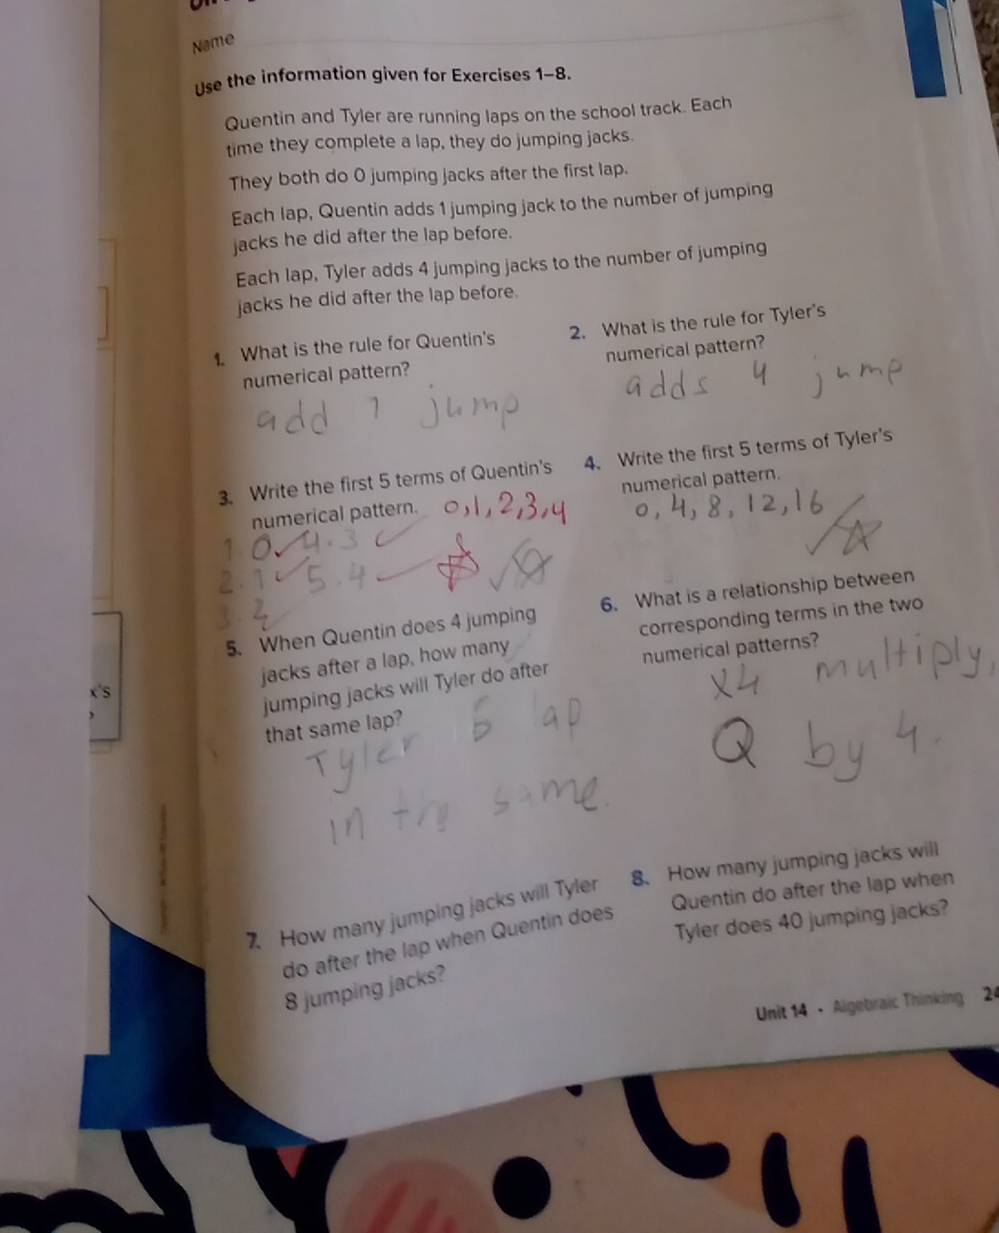 Name
Use the information given for Exercises 1–8.
Quentin and Tyler are running laps on the school track. Each
time they complete a lap, they do jumping jacks.
They both do 0 jumping jacks after the first lap.
Each lap, Quentin adds 1 jumping jack to the number of jumping
jacks he did after the lap before.
Each lap, Tyler adds 4 jumping jacks to the number of jumping
jacks he did after the lap before.
1. What is the rule for Quentin's
numerical pattern?
add 1 jump
2. What is the rule for Tyler's
numerical pattern?
adds 4 jump
3. Write the first 5 terms of Quentin's
numerical pattern. 0,1,2,3,4
1.0 4.3
2.1 5.4
3.2
4. Write the first 5 terms of Tyler's
numerical pattern.
0, 4, 8, 12, 16
5. When Quentin does 4 jumping
jacks after a lap, how many
jumping jacks will Tyler do after
that same lap?
Tyler lap
in the same.
6. What is a relationship between
corresponding terms in the two
numerical patterns?
x4 multiply
Q by 4.
x's
7. How many jumping jacks will Tyler
do after the lap when Quentin does
8 jumping jacks?
8. How many jumping jacks will
Quentin do after the lap when
Tyler does 40 jumping jacks?
Unit 14 • Algebraic Thinking